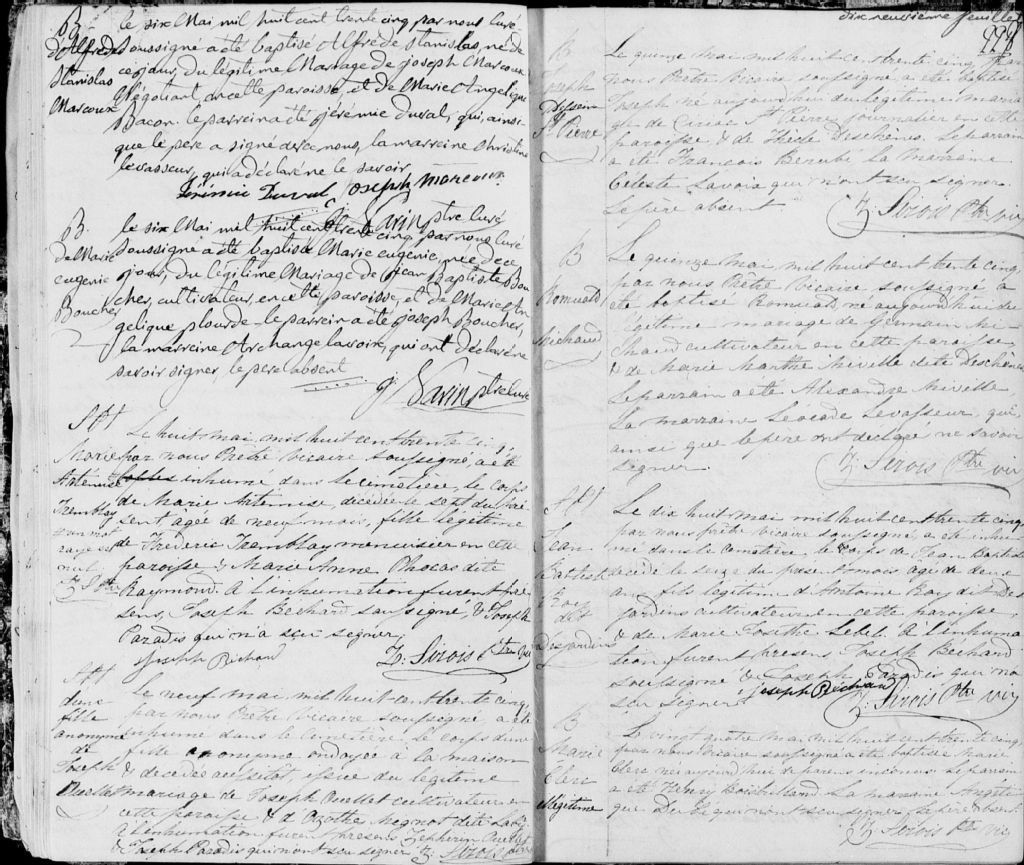 B.
d'Alfrède
Stanislas
Marcoux
le six Mai mil huit cent trente cinq par nous Curé
soussigné a été baptisé Alfrède Stanislas, né de
ce jour, du légitime Mariage de joseph Marcoux
Négotiant, en cette paroisse, et de Marie Angelique
Bacon. le parrein a été jérémie duval, qui, ainsi-
que le pere a signé avec nous, la marreine Christine
levasseur, qui a déclaré ne le savoir
Jérémie Duval Joseph Marcoux
Varin ptre Curé
B.
de Marie
eugenie
Boucher
le six Mai mil huit cent trente cinq par nous Curé
soussigné a été baptisée Marie eugenie, née de ce
jour, du légitime Mariage de jean Baptiste Bou
cher, cultivateur, en cette paroisse, et de Marie An
gelique plourde. le parrein a été joseph Boucher,
la marreine Archange lavoie, qui ont déclaré ne
savoir signer, le pere absent
j. Varin ptre Curé
Marie
Artemise
Tremblay
Le huit mai, mil huit cent trente cinq
par nous Prêtre Vicaire soussigné, a été
inhumé dans le cimetière, le corps
de Marie Artemise, décédée le sept du pré
sent agée de neuf mois, fille légitime
de Fréderic Tremblay menuisier en cette
paroisse & Marie Anne Phocas dite
Raymond. A l'inhumation furent pré
sens, Joseph Bechard soussigné, & Joseph
Paradis qui n'a seu signer,
Joseph Béchard Z: Sirois Ptre Vic
d'une
fille
anonyme
de
Joseph
Ouellet
Le neuf mai mil huit cent trente cinq
par nous Prêtre Vicaire soussigné, a été
inhumé dans le cimetière le corps d'une
fille anonyme ondoyée à la maison
& décédée aussitôt, issue du légitime
mariage de Joseph Ouellet cultivateur en
cette paroisse & d'
A l'inhumation furent presens Zephirin Ouellet
& Joseph Paradis qui n'ont seu signer Z: Sirois Ptre
dix neuvieme feuillet
B
Joseph
St. Pierre
Le quinze mai mil huit cent trente cinq, par
nous Prêtre Vicaire soussigné, a été baptisé
Joseph né aujourd'hui du légitime maria
ge de Ciriac St Pierre journalier en cette
paroisse & de Deschênes. Le parrain
a été François Berubé La marraine
Céleste Lavoie qui n'ont seu signer.
Le père absent Z: Sirois Ptre vic
B
Romuald
Michaud
Le quinze mai, mil huit cent trente cinq,
par nous Prêtre Vicaire soussigné a
été baptisé Romuald né aujourd'hui du
légitime mariage de Germain Mi-
chaud cultivateur en cette paroisse
& de Marie Marthe Miville dite Deschênes
Le parrain a été Alexandre Miville
La marraine Léocade Levasseur, qui,
ainsi que le père ont déclaré ne savoir
signer. Z: Sirois Ptre vic
Jean
Baptiste
Roi
dit
Desjardins
Le dix huit mai mil huit cent trente cinq
par nous prêtre vicaire soussigné, a été inhu
mé dans le cimetière le corps de Jean Baptiste
décédé le seize du présent mois agé de deux
ans fils légitime d'Antoine Roy dit Des
jardins cultivateur en cette paroisse
& de Marie Josethe Lebel. A l'inhuma
tion furent présens Joseph Bechard
soussigné & Joseph Paradis qui n'a
seu signer. Joseph Béchard Z: Sirois Ptre vic
B
Marie
Clerc
illégitime
Le vingt quatre mai, mil huit cent trente cinq
par nous Vicaire soussigné a été baptisée Marie
Clerc née aujourd'hui de parens inconnus Le parrain
a été Henry La marraine Angèle
qui n'ont seu signer, le père absent
Z: Sirois Ptre vic